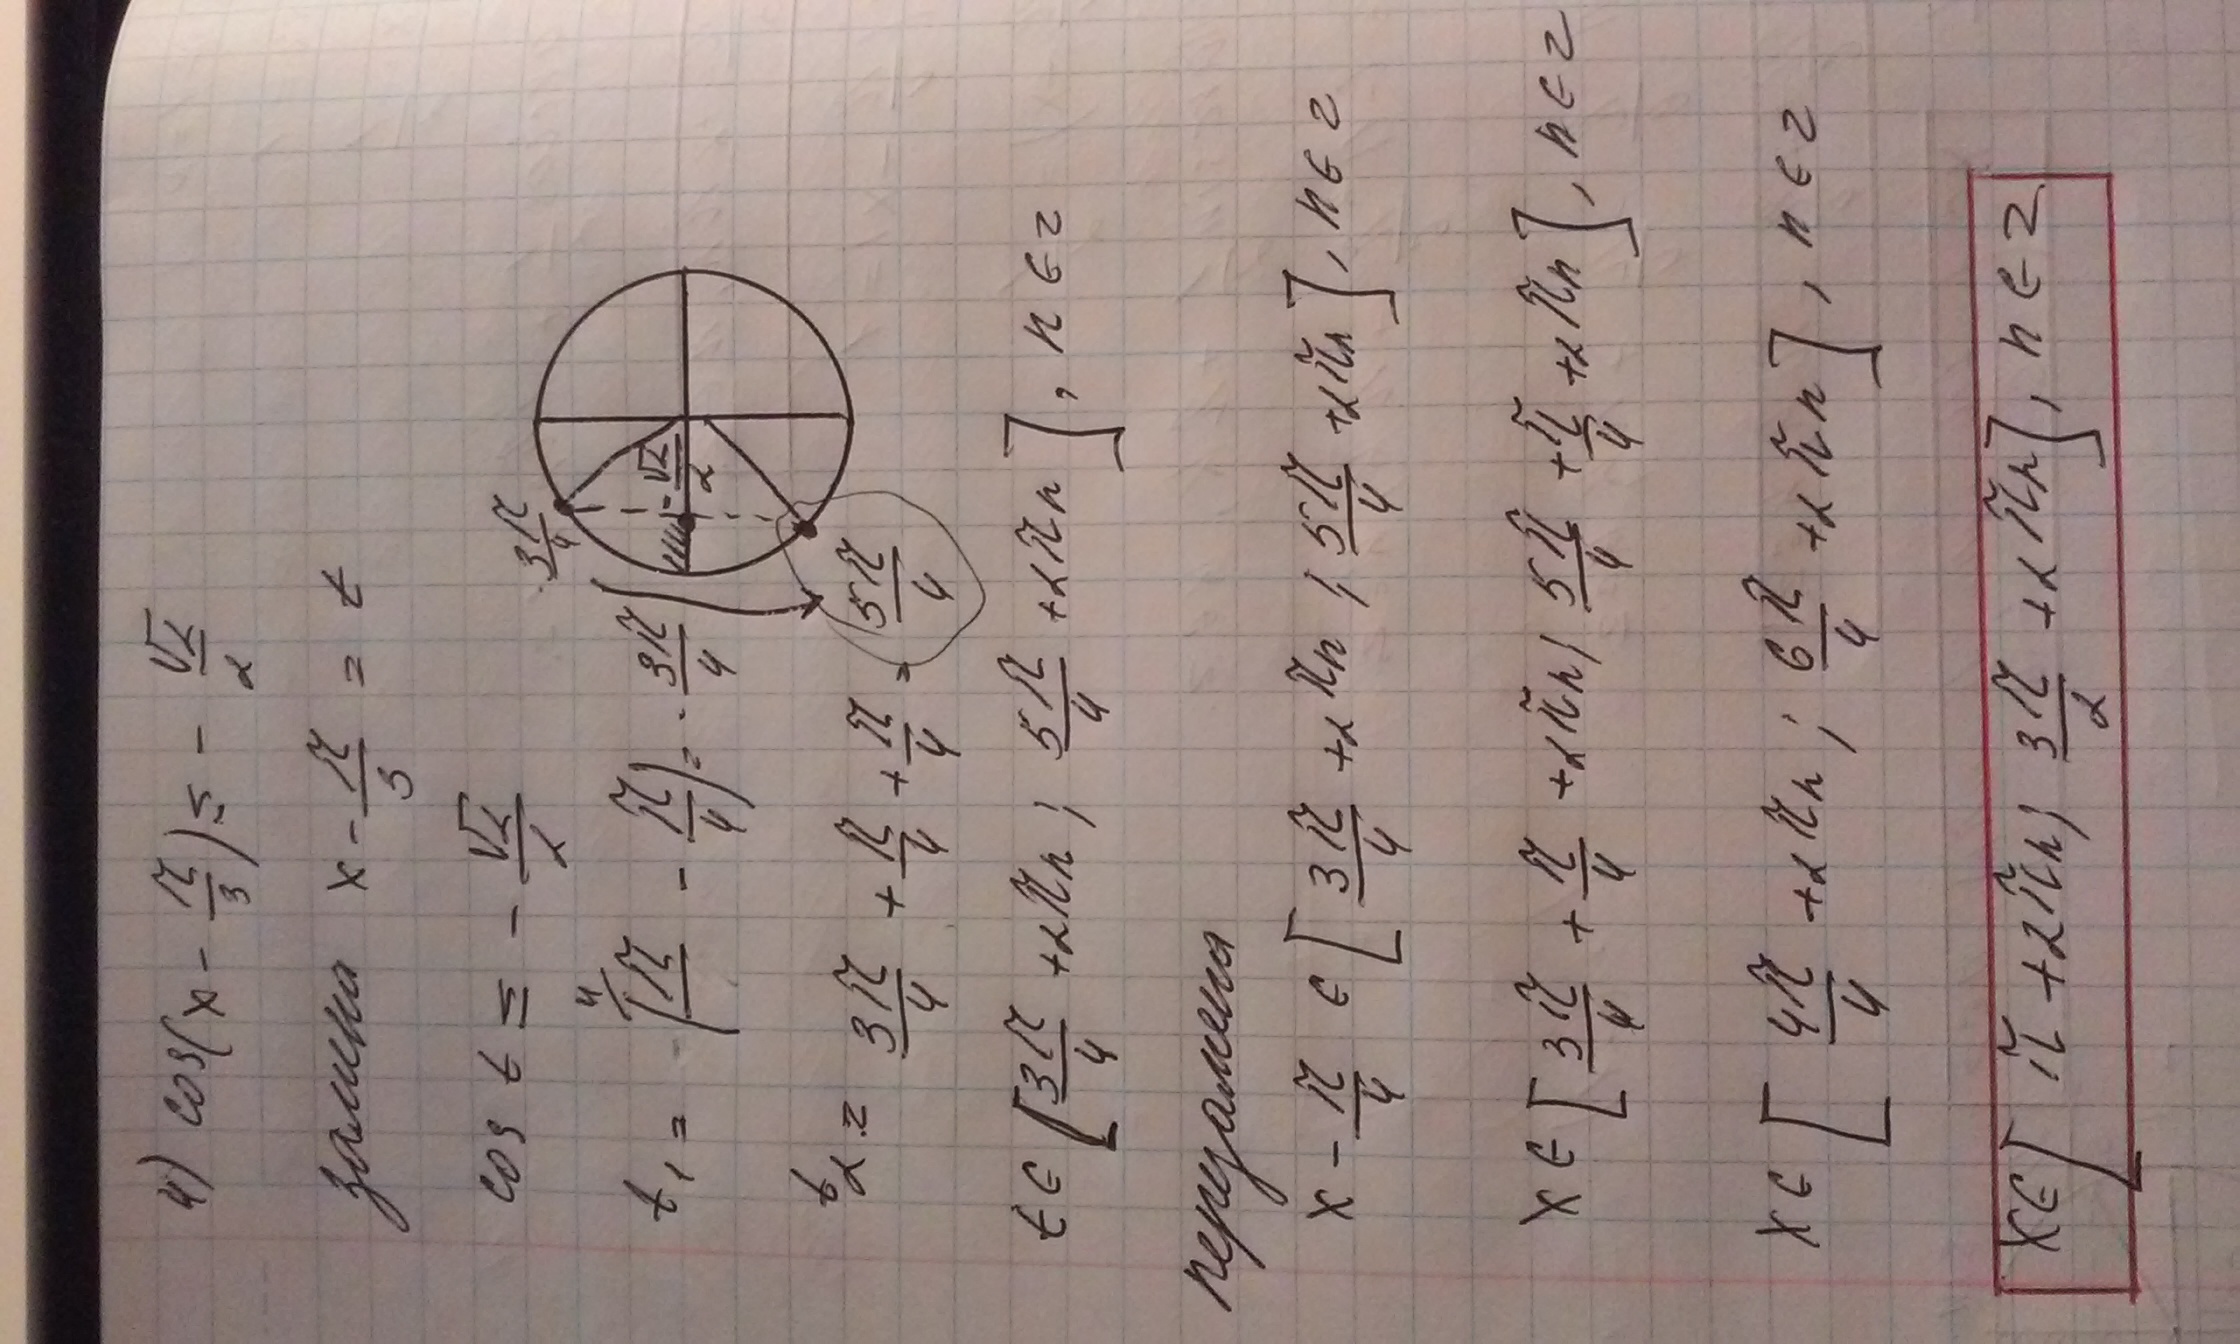 4) cos(x - π/3) ≤ - √2/2
замена x - π/3 = t
cos t ≤ - √2/2
t₁ = (π/1 - π/4) = 3π/4
3π/4
- √2/2
t₂ = 3π/4 + π/4 + π/4 = 5π/4
t ∈ [3π/4 + 2πn ; 5π/4 + 2πn], n ∈ z
x - π/4 ∈ [3π/4 + 2πn ; 5π/4 + 2πn], n ∈ z
x ∈ [3π/4 + π/4 + 2πn ; 5π/4 + π/4 + 2πn], n ∈ z
x ∈ [4π/4 + 2πn ; 6π/4 + 2πn], n ∈ z
x ∈ [π + 2πn ; 3π/2 + 2πn], n ∈ z